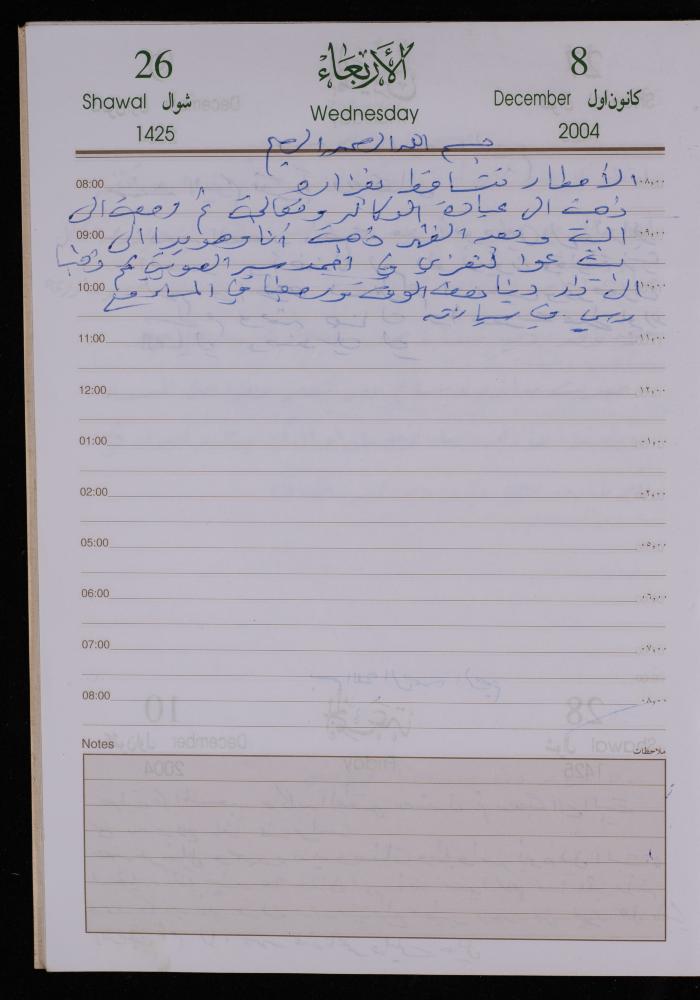 26 الأربعاء 8
Shawal شوال Wednesday December كانون اول
1425 2004
بسم الله الرحمن الرحيم
08:00 الأمطار تتساقط بغزاره ٠٨,٠٠
ذهبت الى عيادة الدكاتر وتعالجت ثم رجعت الى
09:00 البيت وبعد الظهر ذهبت أنا وهويدا الى ٠٩,٠٠
بيت لتعزي في أحمد ثم ذهبنا
10:00 الى دار دينا بعض الوقت ورجعنا في المساء مع ١٠,٠٠
في سيارته
11:00 ١١,٠٠
12:00 ١٢,٠٠
01:00 ٠١,٠٠
02:00 ٠٢,٠٠
05:00 ٠٥,٠٠
06:00 ٠٦,٠٠
07:00 ٠٧,٠٠
08:00 ٠٨,٠٠
Notes ملاحظات